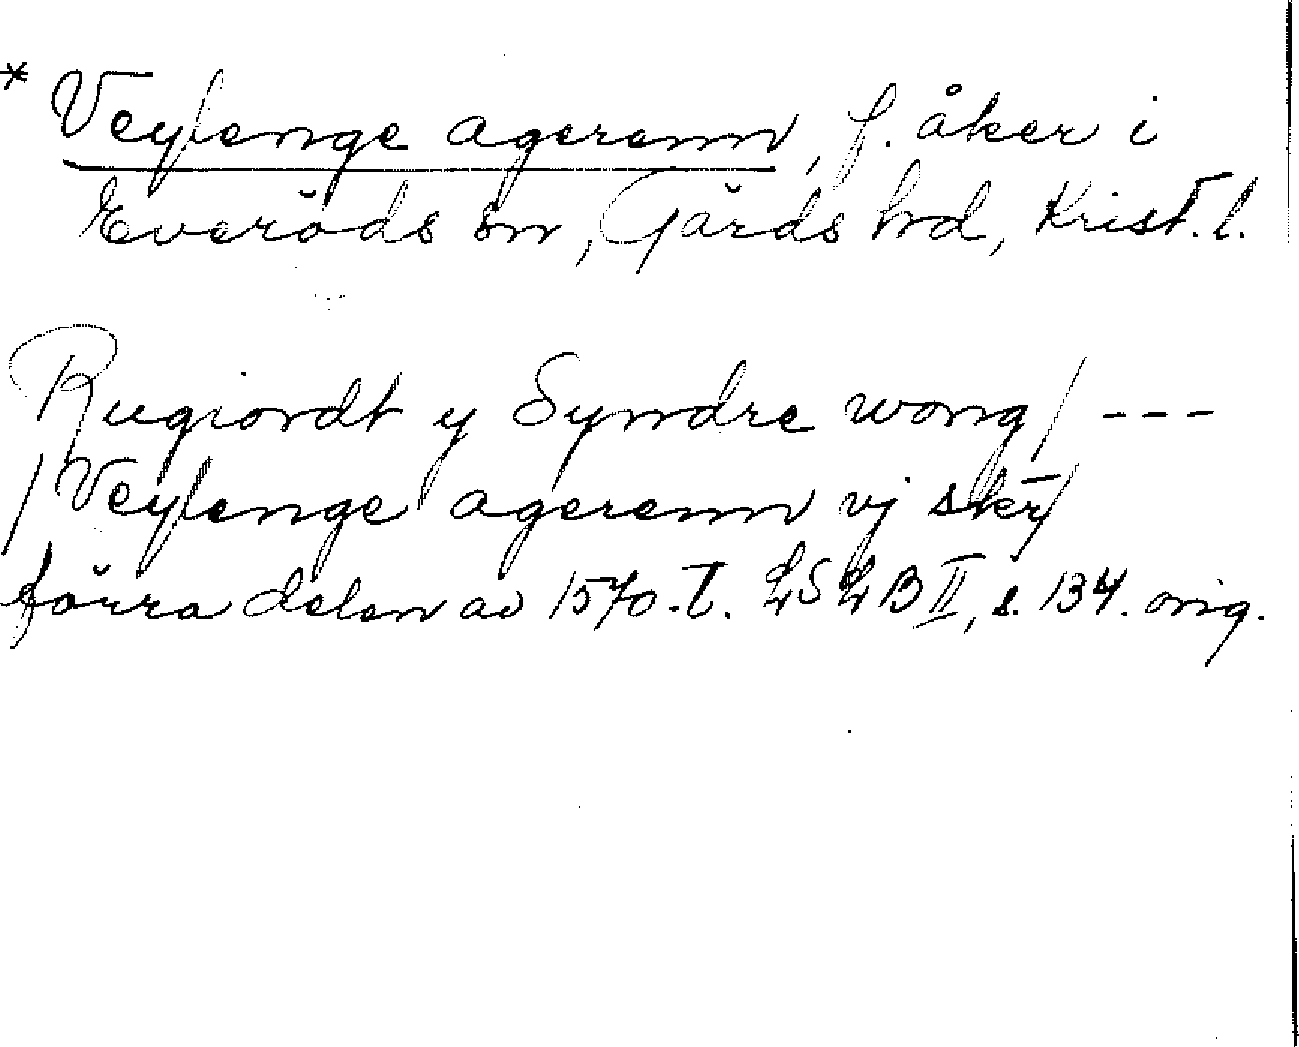 * Veylenge agerenn, f. åker i
Everöds sn, Gärds hd, Krist. l.
Rugiordt y Syndre wong/ ---
/Veylenge agerenn vj skr/
förra delen av 1570-t. LSLB II, s. 134. orig.